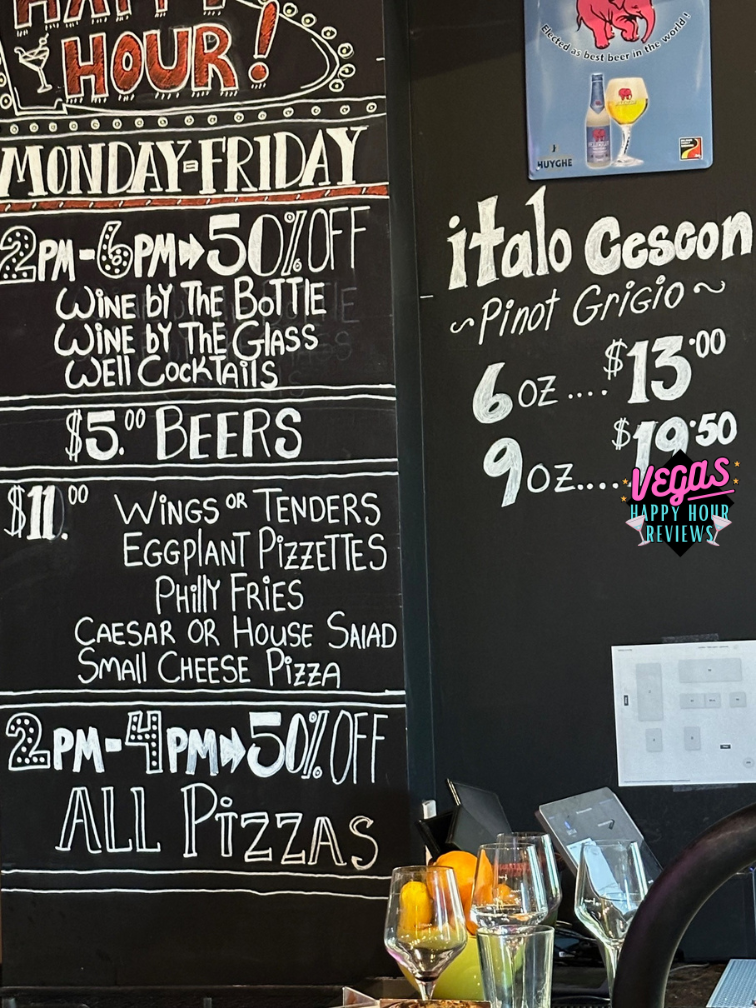 HAPPY
HOUR!
MONDAY-FRIDAY
2PM-6PM→50% OFF
WINE BY THE BOTTLE
WINE BY THE GLASS
WELL COCKTAILS
$5.00 BEERS
$11.00 WINGS OR TENDERS
EGGPLANT PIZZETTES
PHILLY FRIES
CAESAR OR HOUSE SALAD
SMALL CHEESE PIZZA
2PM-4PM→50% OFF
ALL PIZZAS
Elected as best beer in the world!
HUYGHE
italo Cescon
~Pinot Grigio~
6 OZ....$13.00
9 OZ....$19.50
Vegas
HAPPY HOUR
REVIEWS